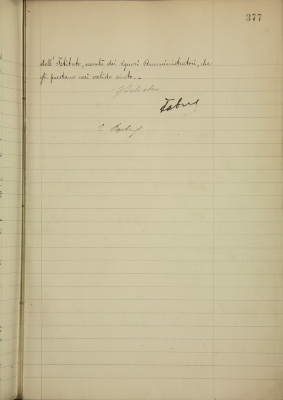 377
dell' Istituto, nonchè dei signori Amministratori, che
gli prestano così valido aiuto._